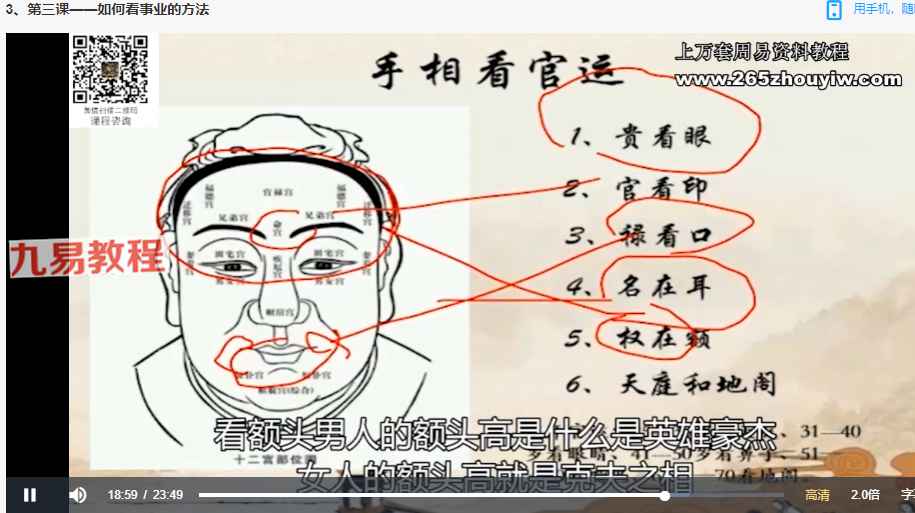 3、第三课——如何看事业的方法
用手机，随
微信扫描二维码
课程咨询
手相看官运
上万套周易资料教程
www.265zhouyiw.com
1、贵看眼
2、官看印
3、禄看口
4、名在耳
5、权在额
6、天庭和地阁
九易教程
官禄宫
福德宫
福德宫
迁移宫
迁移宫
兄弟宫
兄弟宫
命宫
田宅宫
田宅宫
疾厄宫
男女宫
男女宫
财帛宫
相貌宫(综合)
十二宫部位图
、31—40
岁看眼睛、41—50岁看鼻子、51—
70看地阁。
看额头男人的额头高是什么是英雄豪杰
女人的额头高就是克夫之相
18:59 / 23:49
高清
2.0倍
字